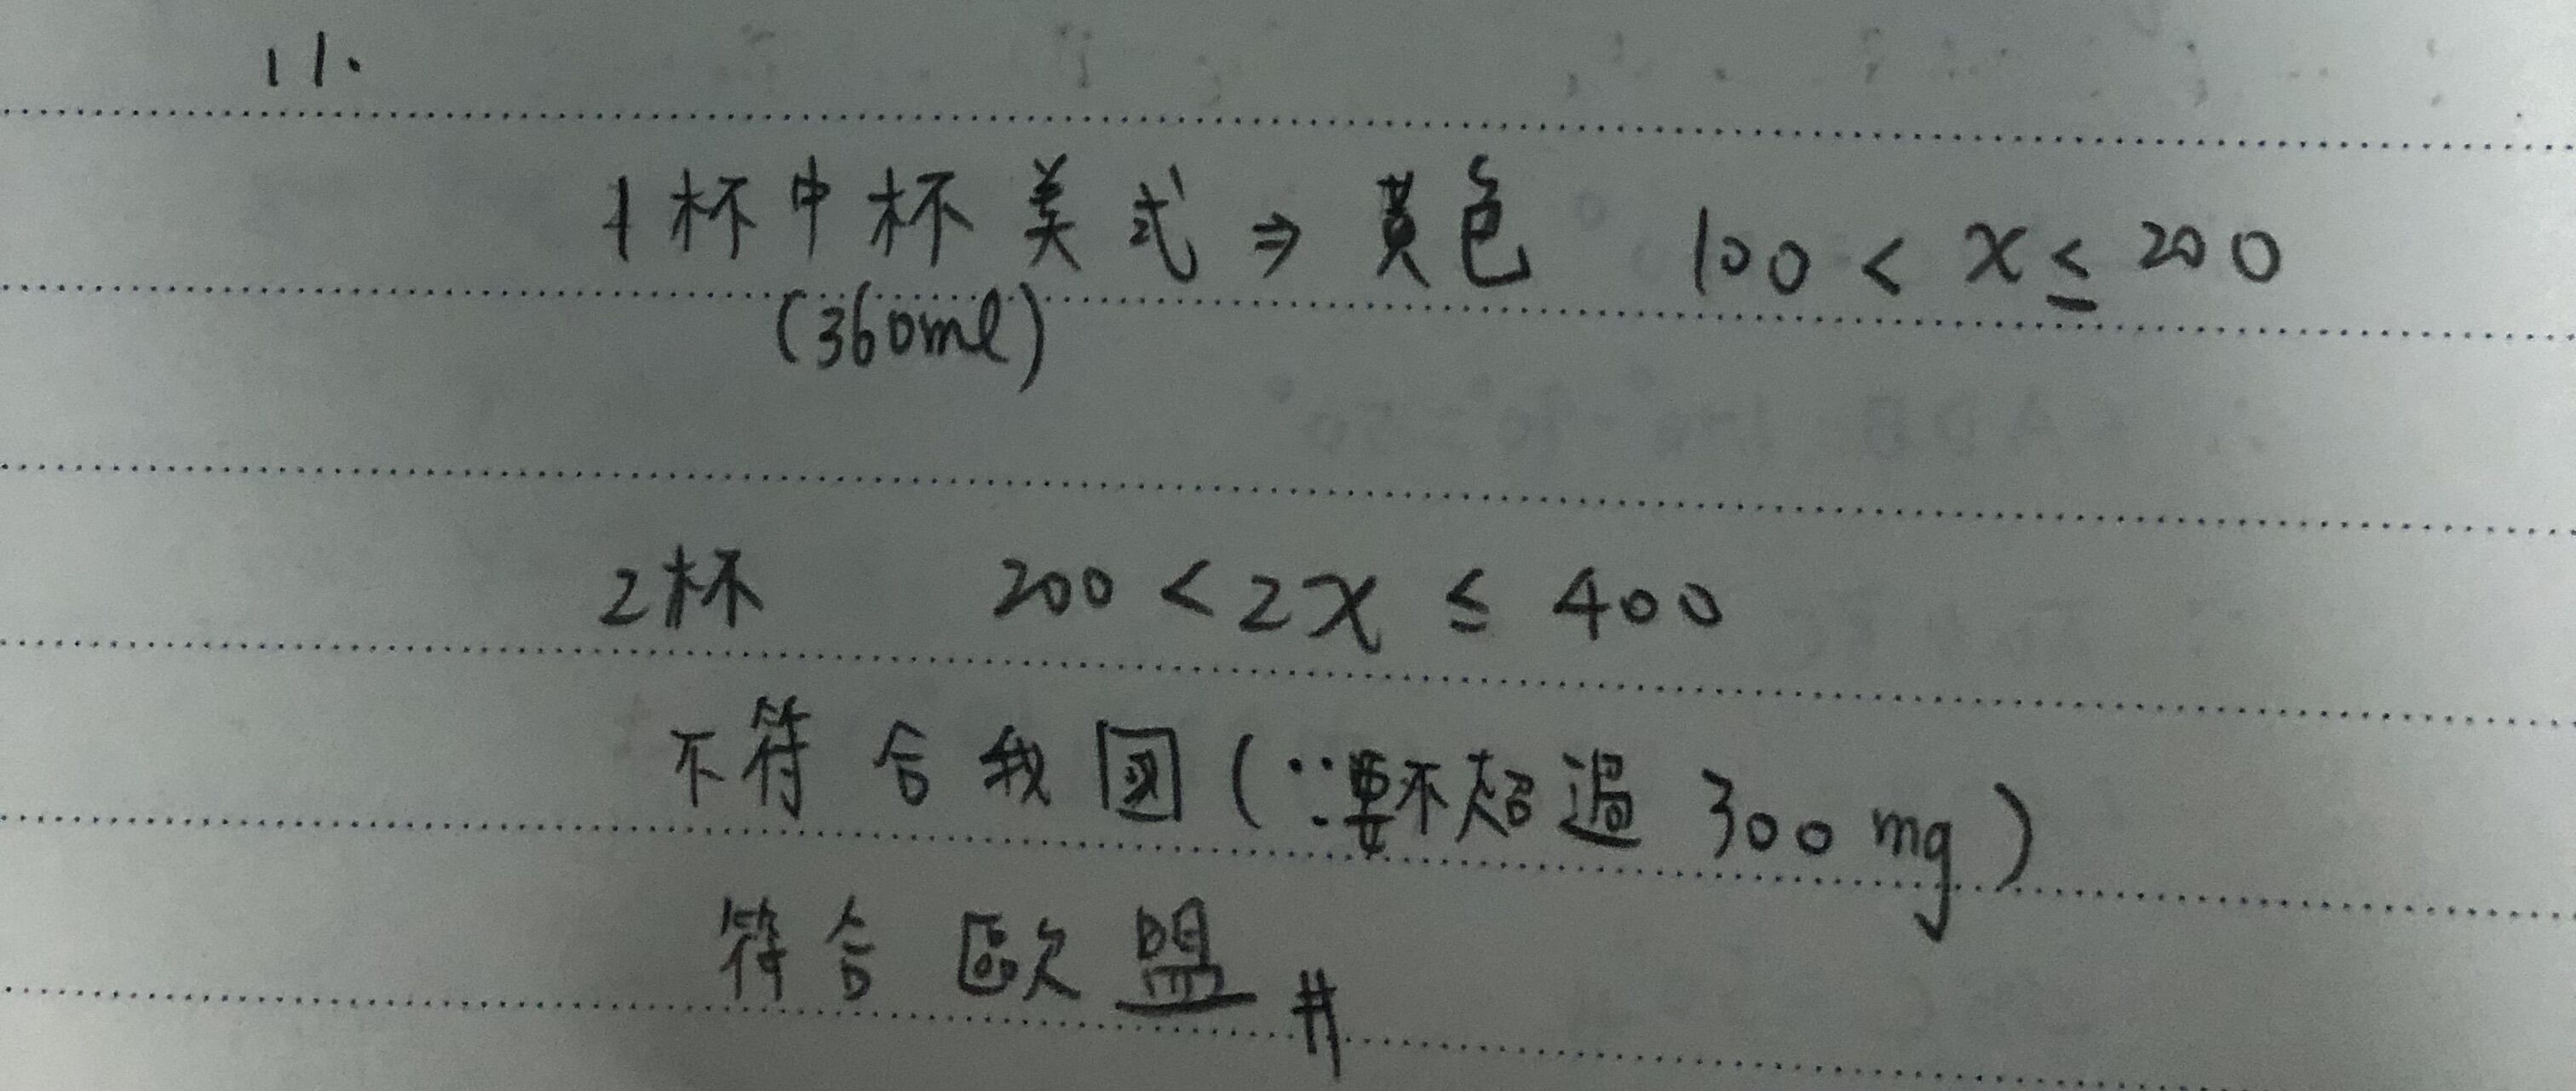 11.
1杯中杯美式⇒黃色 100 < x ≤ 200
(360ml)
2杯 200 < 2x ≤ 400
不符合我國(∵要不超過 300 mg)
符合歐盟#